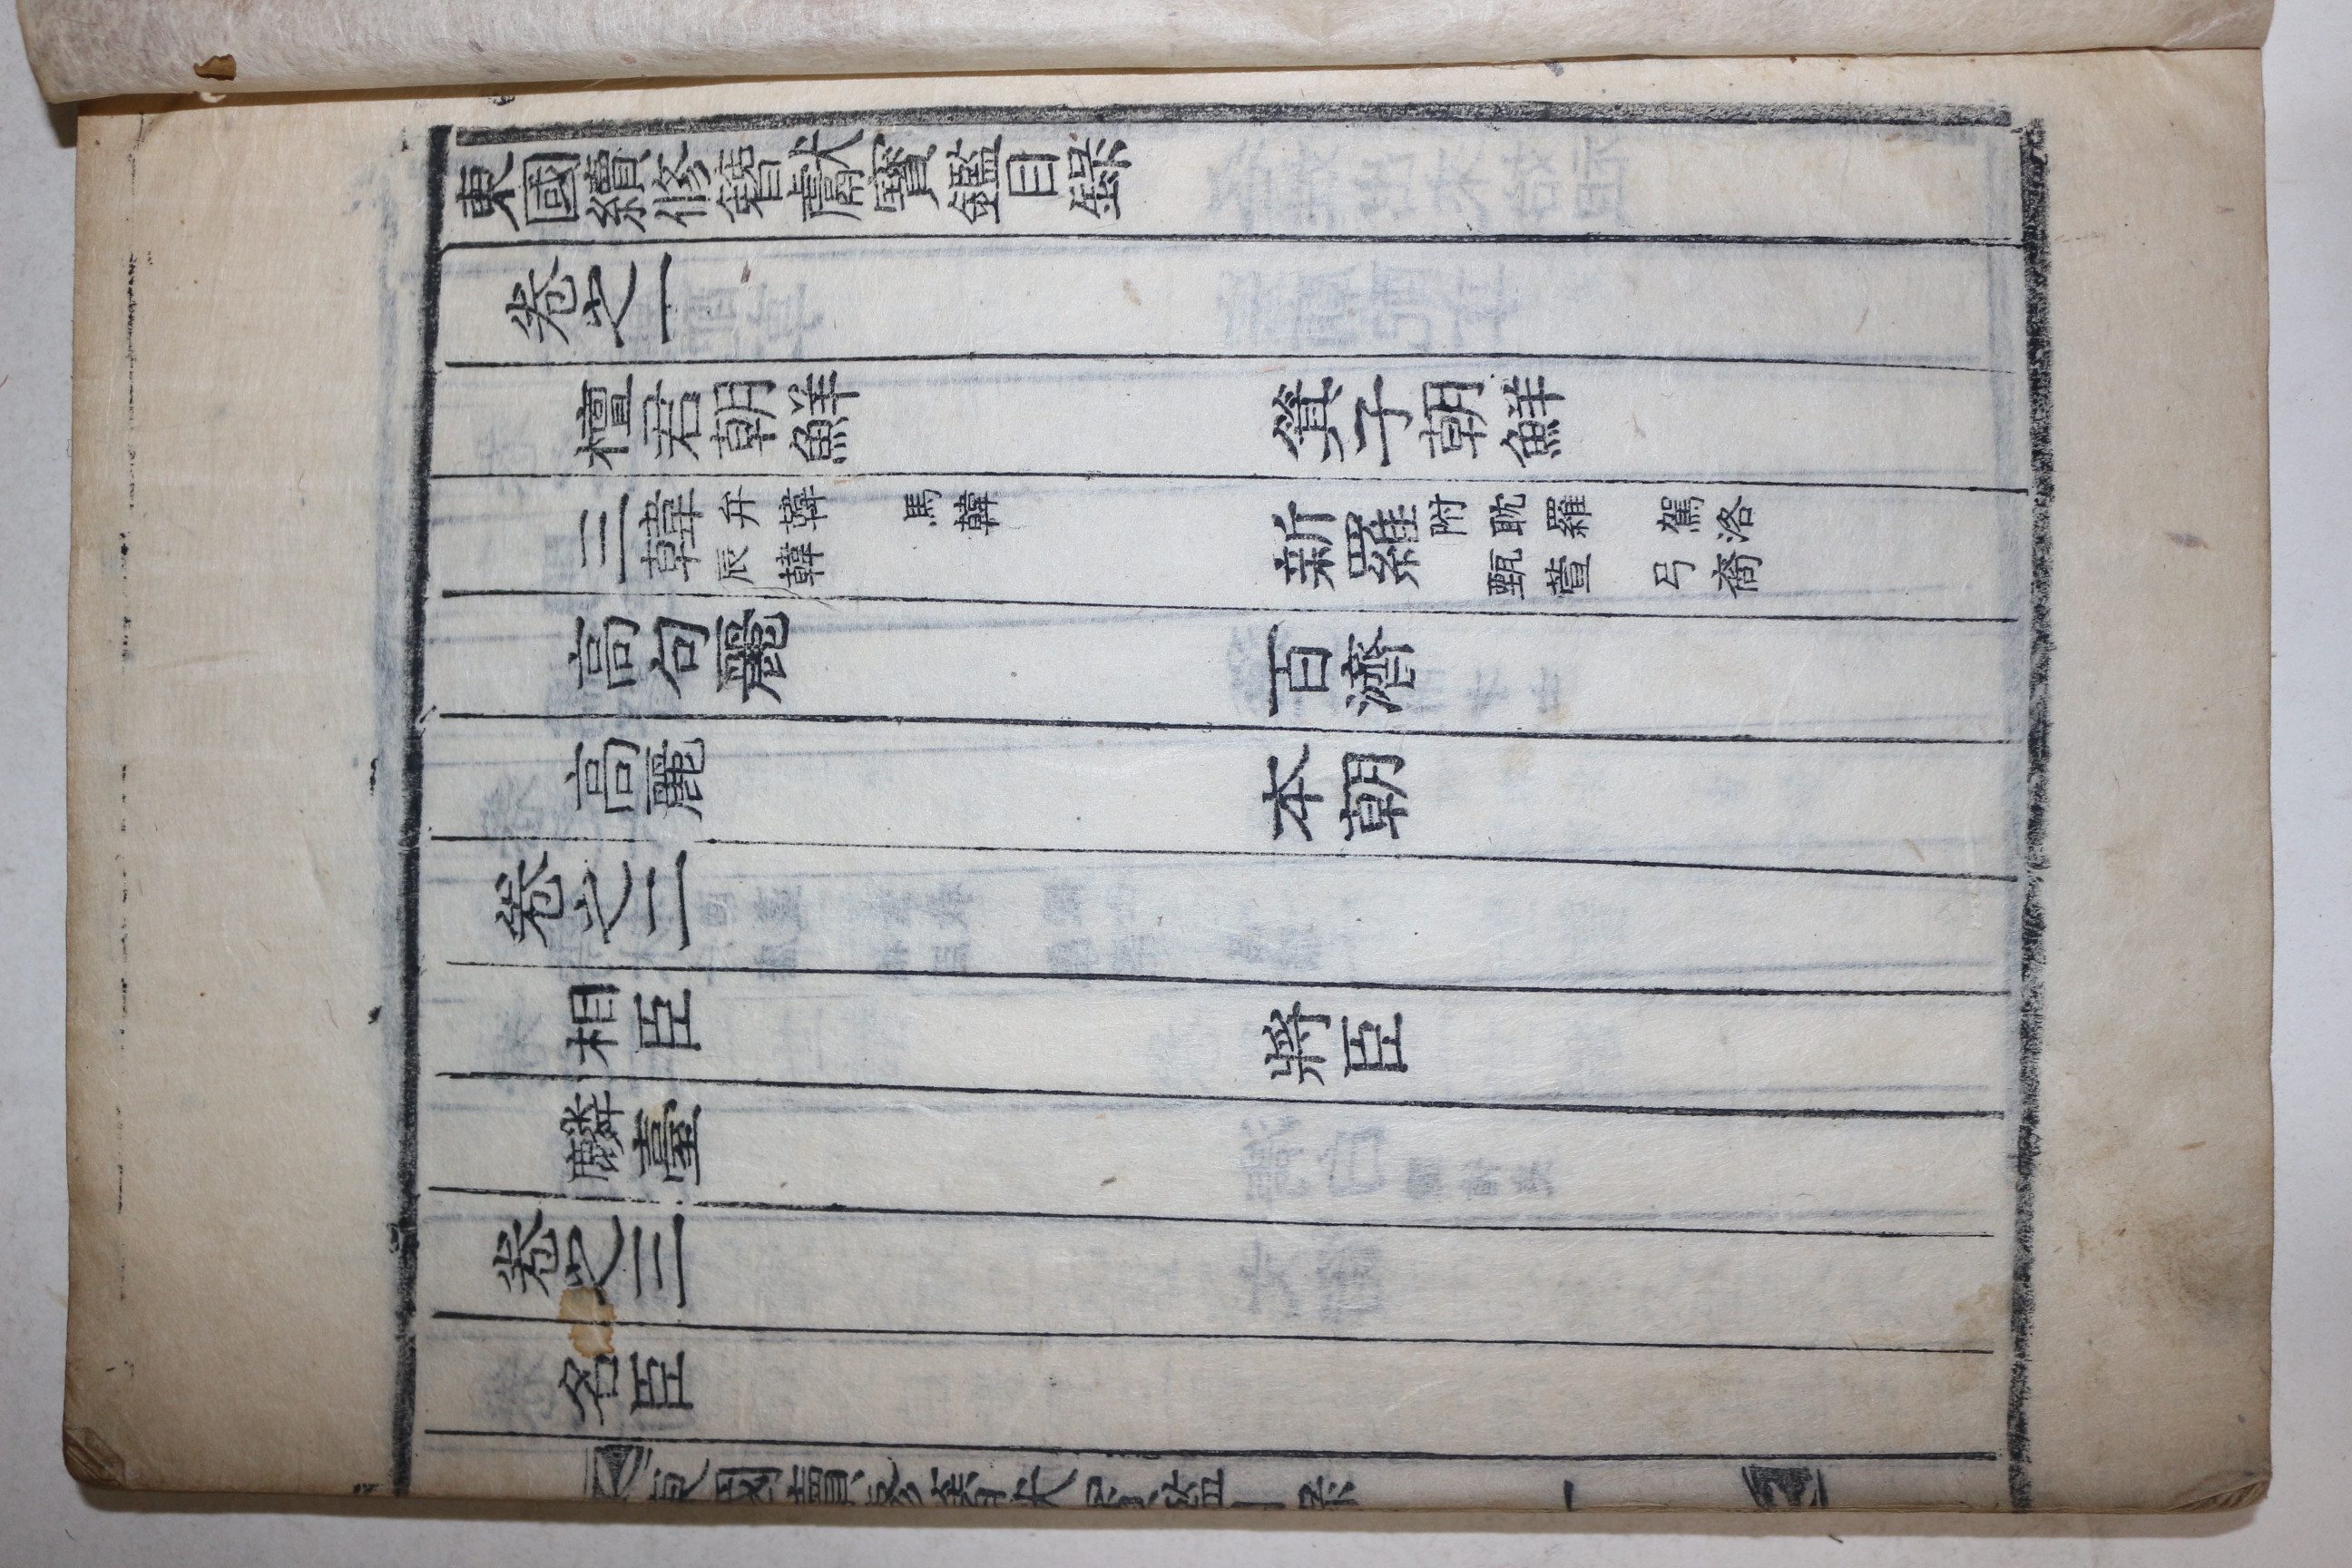 東國續修簪獻寶鑑目錄
卷之一
檀君朝鮮 箕子朝鮮
三韓 弁韓 馬韓 辰韓 新羅 附耽羅 駕洛 甄萱 弓裔
高句麗 百濟
高麗 本朝
卷之二
相臣 將臣
麟臺
卷之三
名臣
東國續修簪獻寶鑑目錄 一